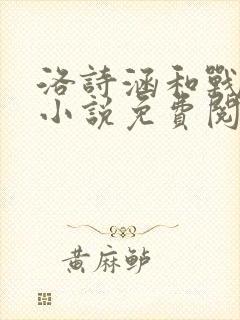 洛詩涵和戰
小說免費閱
黃麻鲈